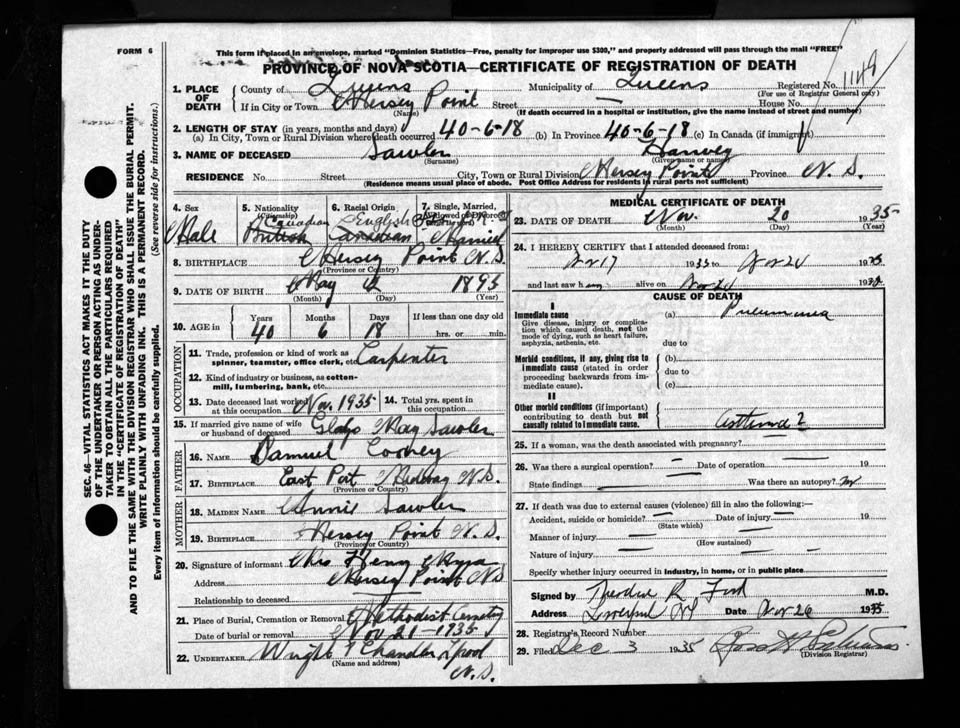 FORM 6
This form if placed in an envelope, marked "Dominion Statistics—Free, penalty for improper use $300," and properly addressed will pass through the mail "FREE"
PROVINCE OF NOVA SCOTIA—CERTIFICATE OF REGISTRATION OF DEATH
1. PLACE OF DEATH County of Queens Municipality of Queens Registered No. 1148
(For use of Registrar General only)
If in City or Town Mersey Point Street — House No.
(Name) (If death occurred in a hospital or institution, give the name instead of street and number)
2. LENGTH OF STAY (in years, months and days)
(a) In City, Town or Rural Division where death occurred 40-6-18 (b) In Province 40-6-18 (c) In Canada (if immigrant)
3. NAME OF DECEASED Sawler Harvey
(Surname) (Given name or name)
RESIDENCE No. Street City, Town or Rural Division Mersey Point Province N.S.
(Residence means usual place of abode. Post Office Address for residents in rural parts not sufficient)
4. Sex Male
5. Nationality (Citizenship) Canadian British
6. Racial Origin English Canadian
7. Single, Married, Widowed or Divorced Married
8. BIRTHPLACE Mersey Point N.S.
(Province or Country)
9. DATE OF BIRTH May 2 1895
(Month) (Day) (Year)
10. AGE in Years Months Days If less than one day old
40 6 18 hrs. or min.
OCCUPATION
11. Trade, profession or kind of work as spinner, teamster, office clerk, etc. Carpenter
12. Kind of industry or business, as cotton-mill, lumbering, bank, etc.
13. Date deceased last worked at this occupation Nov. 1935 14. Total yrs. spent in this occupation
15. If married give name of wife or husband of deceased Gladys May Sawler
FATHER
16. NAME Samuel Cooney
17. BIRTHPLACE East Port Medway N.S.
(Province or Country)
MOTHER
18. MAIDEN NAME Annie Sawler
19. BIRTHPLACE Mersey Point N.S.
(Province or Country)
20. Signature of informant Mrs Henry Myra
Address Mersey Point N.S.
Relationship to deceased —
21. Place of Burial, Cremation or Removal Methodist Cemetery
Date of burial or removal Nov 21-1935
22. UNDERTAKER Wright & Chandler L'pool
(Name and address) N.S.
MEDICAL CERTIFICATE OF DEATH
23. DATE OF DEATH Nov. 20 1935
(Month) (Day)
24. I HEREBY CERTIFY that I attended deceased from:
Nov 17 1935 to Nov 20 1935
and last saw him alive on Nov 20 1935
CAUSE OF DEATH
I
Immediate cause (a) Pneumonia
Give disease, injury or complication which caused death, not the mode of dying, such as heart failure, asphyxia, asthenia, etc.
due to
Morbid conditions, if any, giving rise to immediate cause (stated in order proceeding backwards from immediate cause). (b)
due to
(c)
II
Other morbid conditions (if important) contributing to death but not causally related to immediate cause. Asthma ?
25. If a woman, was the death associated with pregnancy?
26. Was there a surgical operation? — Date of operation — 19
State findings — Was there an autopsy? no
27. If death was due to external causes (violence) fill in also the following:
Accident, suicide or homicide? — Date of injury — 19
(State which)
Manner of injury —
(How sustained)
Nature of injury —
Specify whether injury occurred in industry, in home, or in public place
Signed by Theodore R Ford M.D.
Address Liverpool NS Date Nov 26 1935
28. Registrar's Record Number
29. Filed Dec 3 1935
(Division Registrar)
SEC. 46—VITAL STATISTICS ACT MAKES IT THE DUTY
OF THE UNDERTAKER OR PERSON ACTING AS UNDER-
TAKER TO OBTAIN ALL THE PARTICULARS REQUIRED
IN THE "CERTIFICATE OF REGISTRATION OF DEATH"
AND TO FILE THE SAME WITH THE DIVISION REGISTRAR WHO SHALL ISSUE THE BURIAL PERMIT.
WRITE PLAINLY WITH UNFADING INK. THIS IS A PERMANENT RECORD.
Every item of information should be carefully supplied. (See reverse side for instructions.)